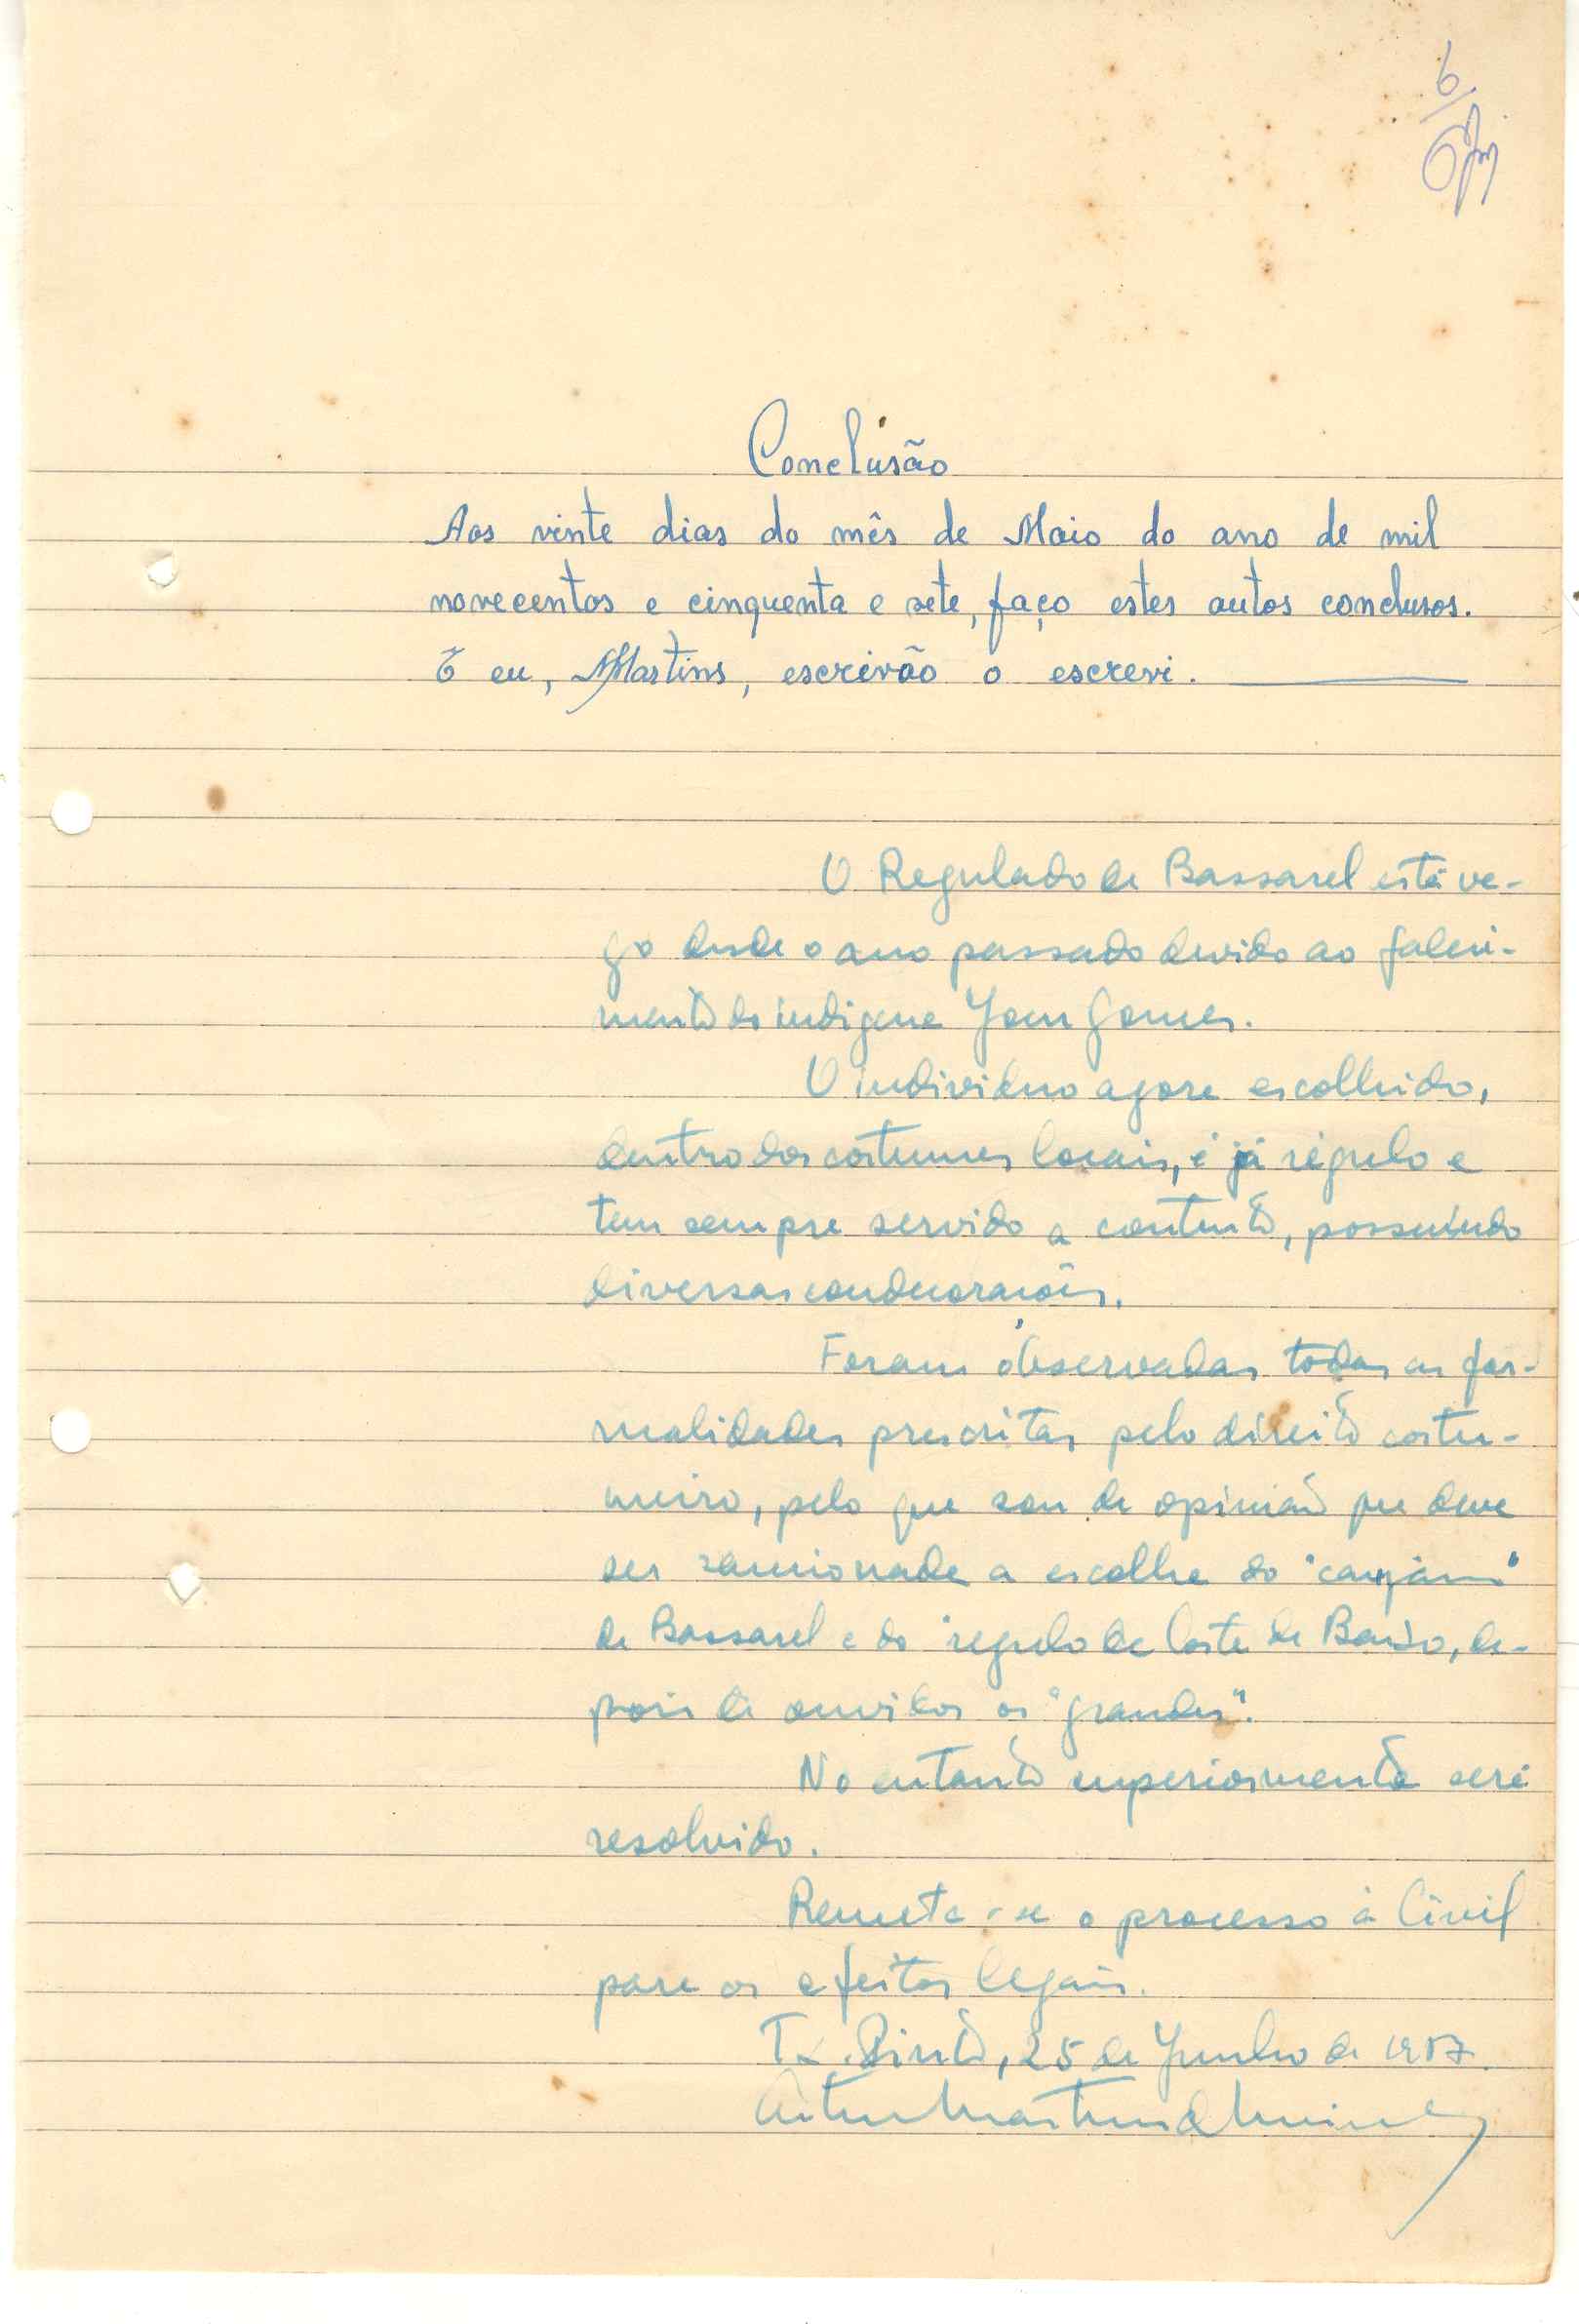 6
Conclusão
Aos vinte dias do mês de Maio do ano de mil
novecentos e cinquenta e sete, faço estes autos conclusos.
E eu, Martins, escrivão o escrevi.
O Regulado de Bassarel está va-
go desde o ano passado devido ao faleci-
mento do indigena Joan Gomes.
O individuo agora escolhido,
dentro dos costumes locais, é já régulo e
tem sempre servido a contento, possuindo
diversas condecorações.
Foram observadas todas as for-
malidades prescritas pelo direito costu-
meiro, pelo que sou de opinião que deve
ser sancionada a escolha do
de Bassarel e do regulo de Costa de Baixo, de-
pois de ouvidos os "grandes".
No entanto superiormente será
resolvido.
Remeta-se o processo à Civil
para os efeitos legais.
Tx. Pinto, 25 de Junho de 1957.